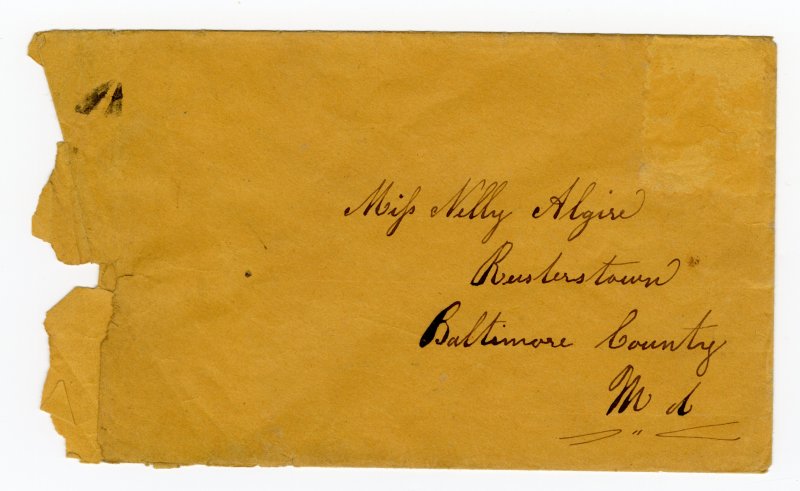 Miss Nelly Algire
Reusterstown
Baltimore County
Md